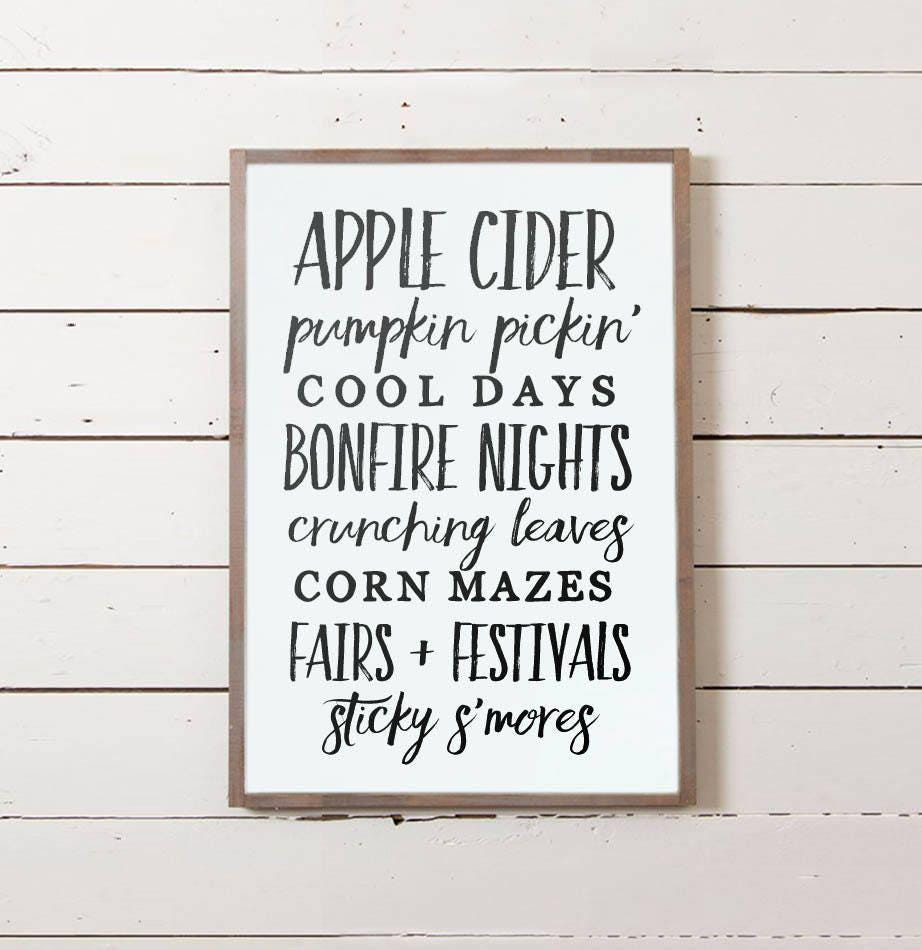 APPLE CIDER
pumpkin pickin'
COOL DAYS
BONFIRE NIGHTS
crunching leaves
CORN MAZES
FAIRS + FESTIVALS
sticky s'mores